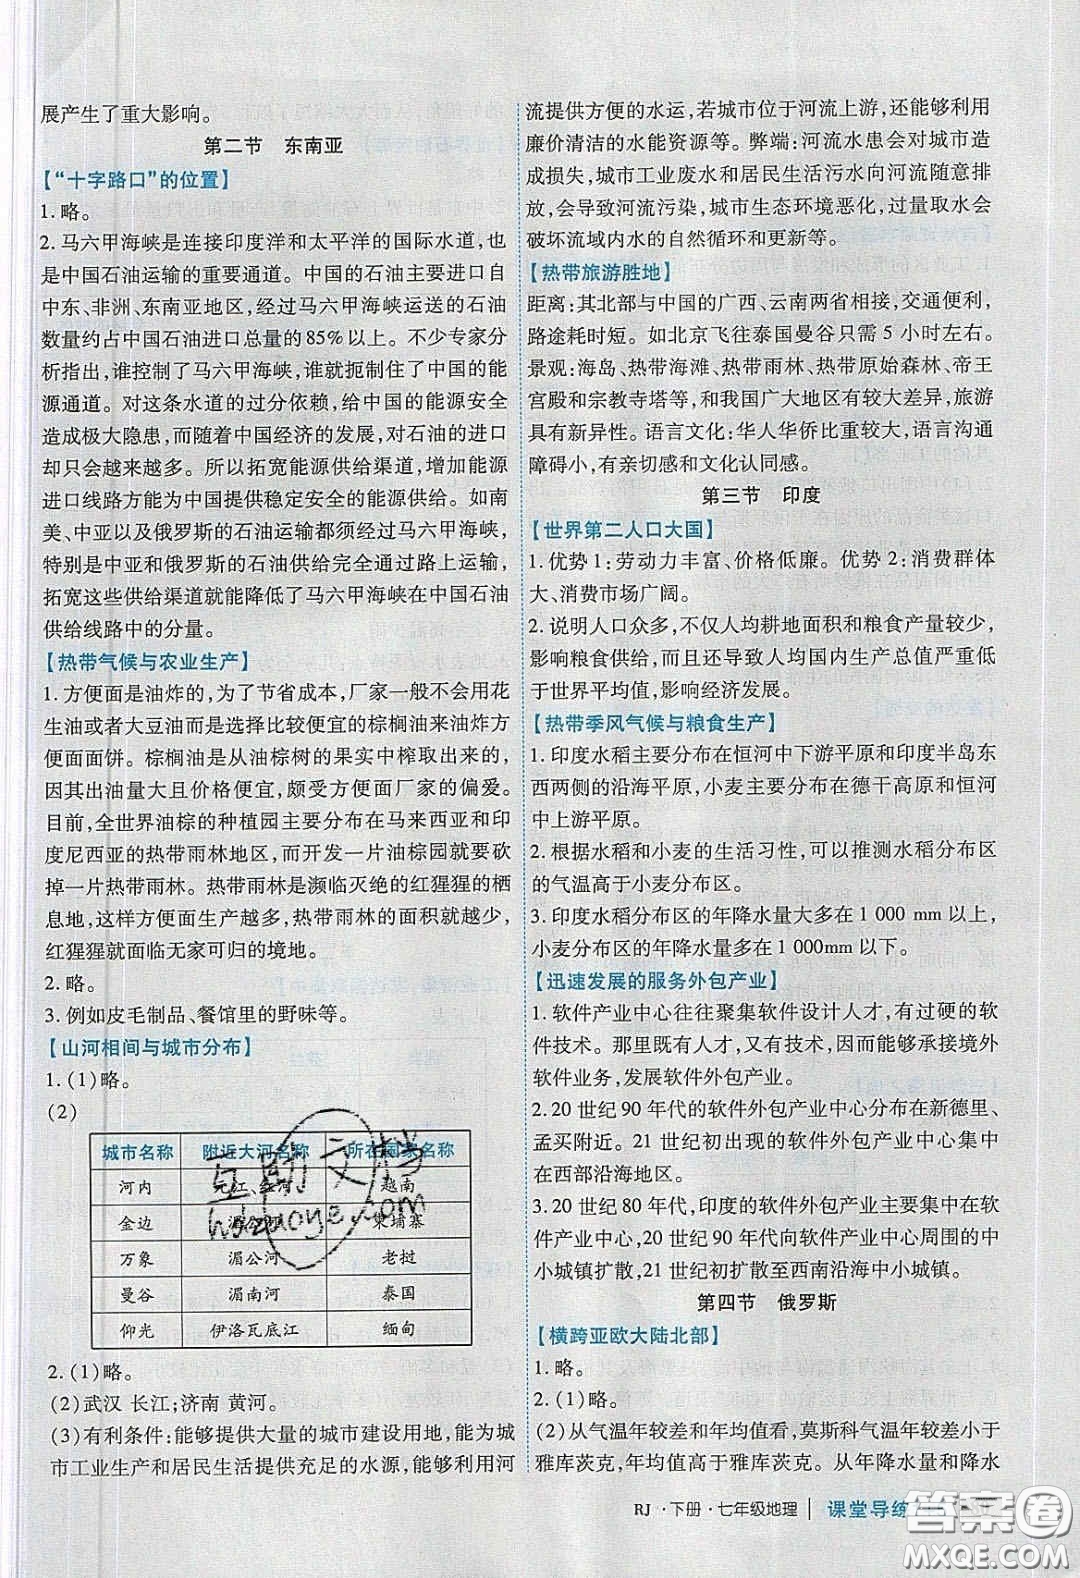 展产生了重大影响。
第二节　东南亚
【“十字路口”的位置】
1. 略。
2. 马六甲海峡是连接印度洋和太平洋的国际水道,也
是中国石油运输的重要通道。中国的石油主要进口自
中东、非洲、东南亚地区,经过马六甲海峡运送的石油
数量约占中国石油进口总量的85%以上。不少专家分
析指出,谁控制了马六甲海峡,谁就扼制住了中国的能
源通道。对这条水道的过分依赖,给中国的能源安全
造成极大隐患,而随着中国经济的发展,对石油的进口
却只会越来越多。所以拓宽能源供给渠道,增辟能源
进口线路方能为中国提供稳定安全的能源供给。如南
美、中亚以及俄罗斯的石油运输都须经过马六甲海峡,
特别是中亚和俄罗斯的石油供给完全可通过路上运输,
拓宽这些供给渠道就能降低了马六甲海峡在中国石油
供给线路中的分量。
【热带气候与农业生产】
1. 方便面是油炸的,为了节省成本,厂家一般不会用花
生油或者大豆油而是选择比较便宜的棕榈油来油炸方
便面面饼。棕榈油是从油棕树的果实中榨取出来的,
因其出油量大且价格便宜,颇受方便面厂家的偏爱。
目前,全世界油棕的种植园主要分布在马来西亚和印
度尼西亚的热带雨林地区,而开发一片油棕园就要砍
掉一片热带雨林。热带雨林是濒临灭绝的红猩猩的栖
息地,这样方便面生产越多,热带雨林的面积就越少,
红猩猩就面临无家可归的境地。
2. 略。
3. 例如皮毛制品、餐馆里的野味等。
【山河相间与城市分布】
1. (1)略。
(2)
城市名称　附近大河名称　所在国家名称
河内　元江　红河　越南
金边　湄公河　柬埔寨
万象　湄公河　老挝
曼谷　湄南河　泰国
仰光　伊洛瓦底江　缅甸
2. (1)略。
(2)武汉 长江;济南 黄河。
(3)有利条件:能够提供大量的城市建设用地,能为城
市工业生产和居民生活提供充足的水源,能够利用河
流提供方便的水运,若城市位于河流上游,还能够利用
廉价清洁的水能资源等。弊端:河流水患会对城市造
成损失,城市工业废水和居民生活污水向河流随意排
放,会导致河流污染,城市生态环境恶化,过量取水会
破坏流域内水的自然循环和更新等。
【热带旅游胜地】
距离:其北部与中国的广西、云南两省相接,交通便利,
路途耗时短。如北京飞往泰国曼谷只需 5 小时左右。
景观:海岛、热带海滩、热带雨林、热带原始森林、帝王
宫殿和宗教寺塔等,和我国广大地区有较大差异,旅游
具有新异性。语言文化:华人华侨比重较大,语言沟通
障碍小,有亲切感和文化认同感。
第三节　印度
【世界第二人口大国】
1. 优势 1:劳动力丰富、价格低廉。优势 2:消费群体
大、消费市场广阔。
2. 说明人口众多,不仅人均耕地面积和粮食产量较少,
影响粮食供给,而且还导致人均国内生产总值严重低
于世界平均值,影响经济发展。
【热带季风气候与粮食生产】
1. 印度水稻主要分布在恒河中下游平原和印度半岛东
西两侧的沿海平原,小麦主要分布在德干高原和恒河
中上游平原。
2. 根据水稻和小麦的生活习性,可以推测水稻分布区
的气温高于小麦分布区。
3. 印度水稻分布区的年降水量大多在 1 000 mm 以上,
小麦分布区的年降水量多在 1 000mm 以下。
【迅速发展的服务外包产业】
1. 软件产业中心往往聚集软件设计人才,有过硬的软
件技术。那里既有人才,又有技术,因而能够承接境外
软件业务,发展软件外包产业。
2. 20 世纪 90 年代的软件外包产业中心分布在新德里、
孟买附近。21 世纪初出现的软件外包产业中心集中
在西部沿海地区。
3. 20 世纪 80 年代,印度的软件外包产业主要集中在软
件产业中心,20 世纪 90 年代向软件产业中心周围的中
小城镇扩散,21 世纪初扩散至西南沿海中小城镇。
第四节　俄罗斯
【横跨亚欧大陆北部】
1. 略。
2. (1)略。
(2)从气温年较差和年均值看,莫斯科气温年较差小于
雅库茨克,年均值高于雅库茨克。从年降水量和降水
RJ ·下册·七年级地理　课堂导练
互助文档
hdzuoye.com
答案圈
MXQE.COM